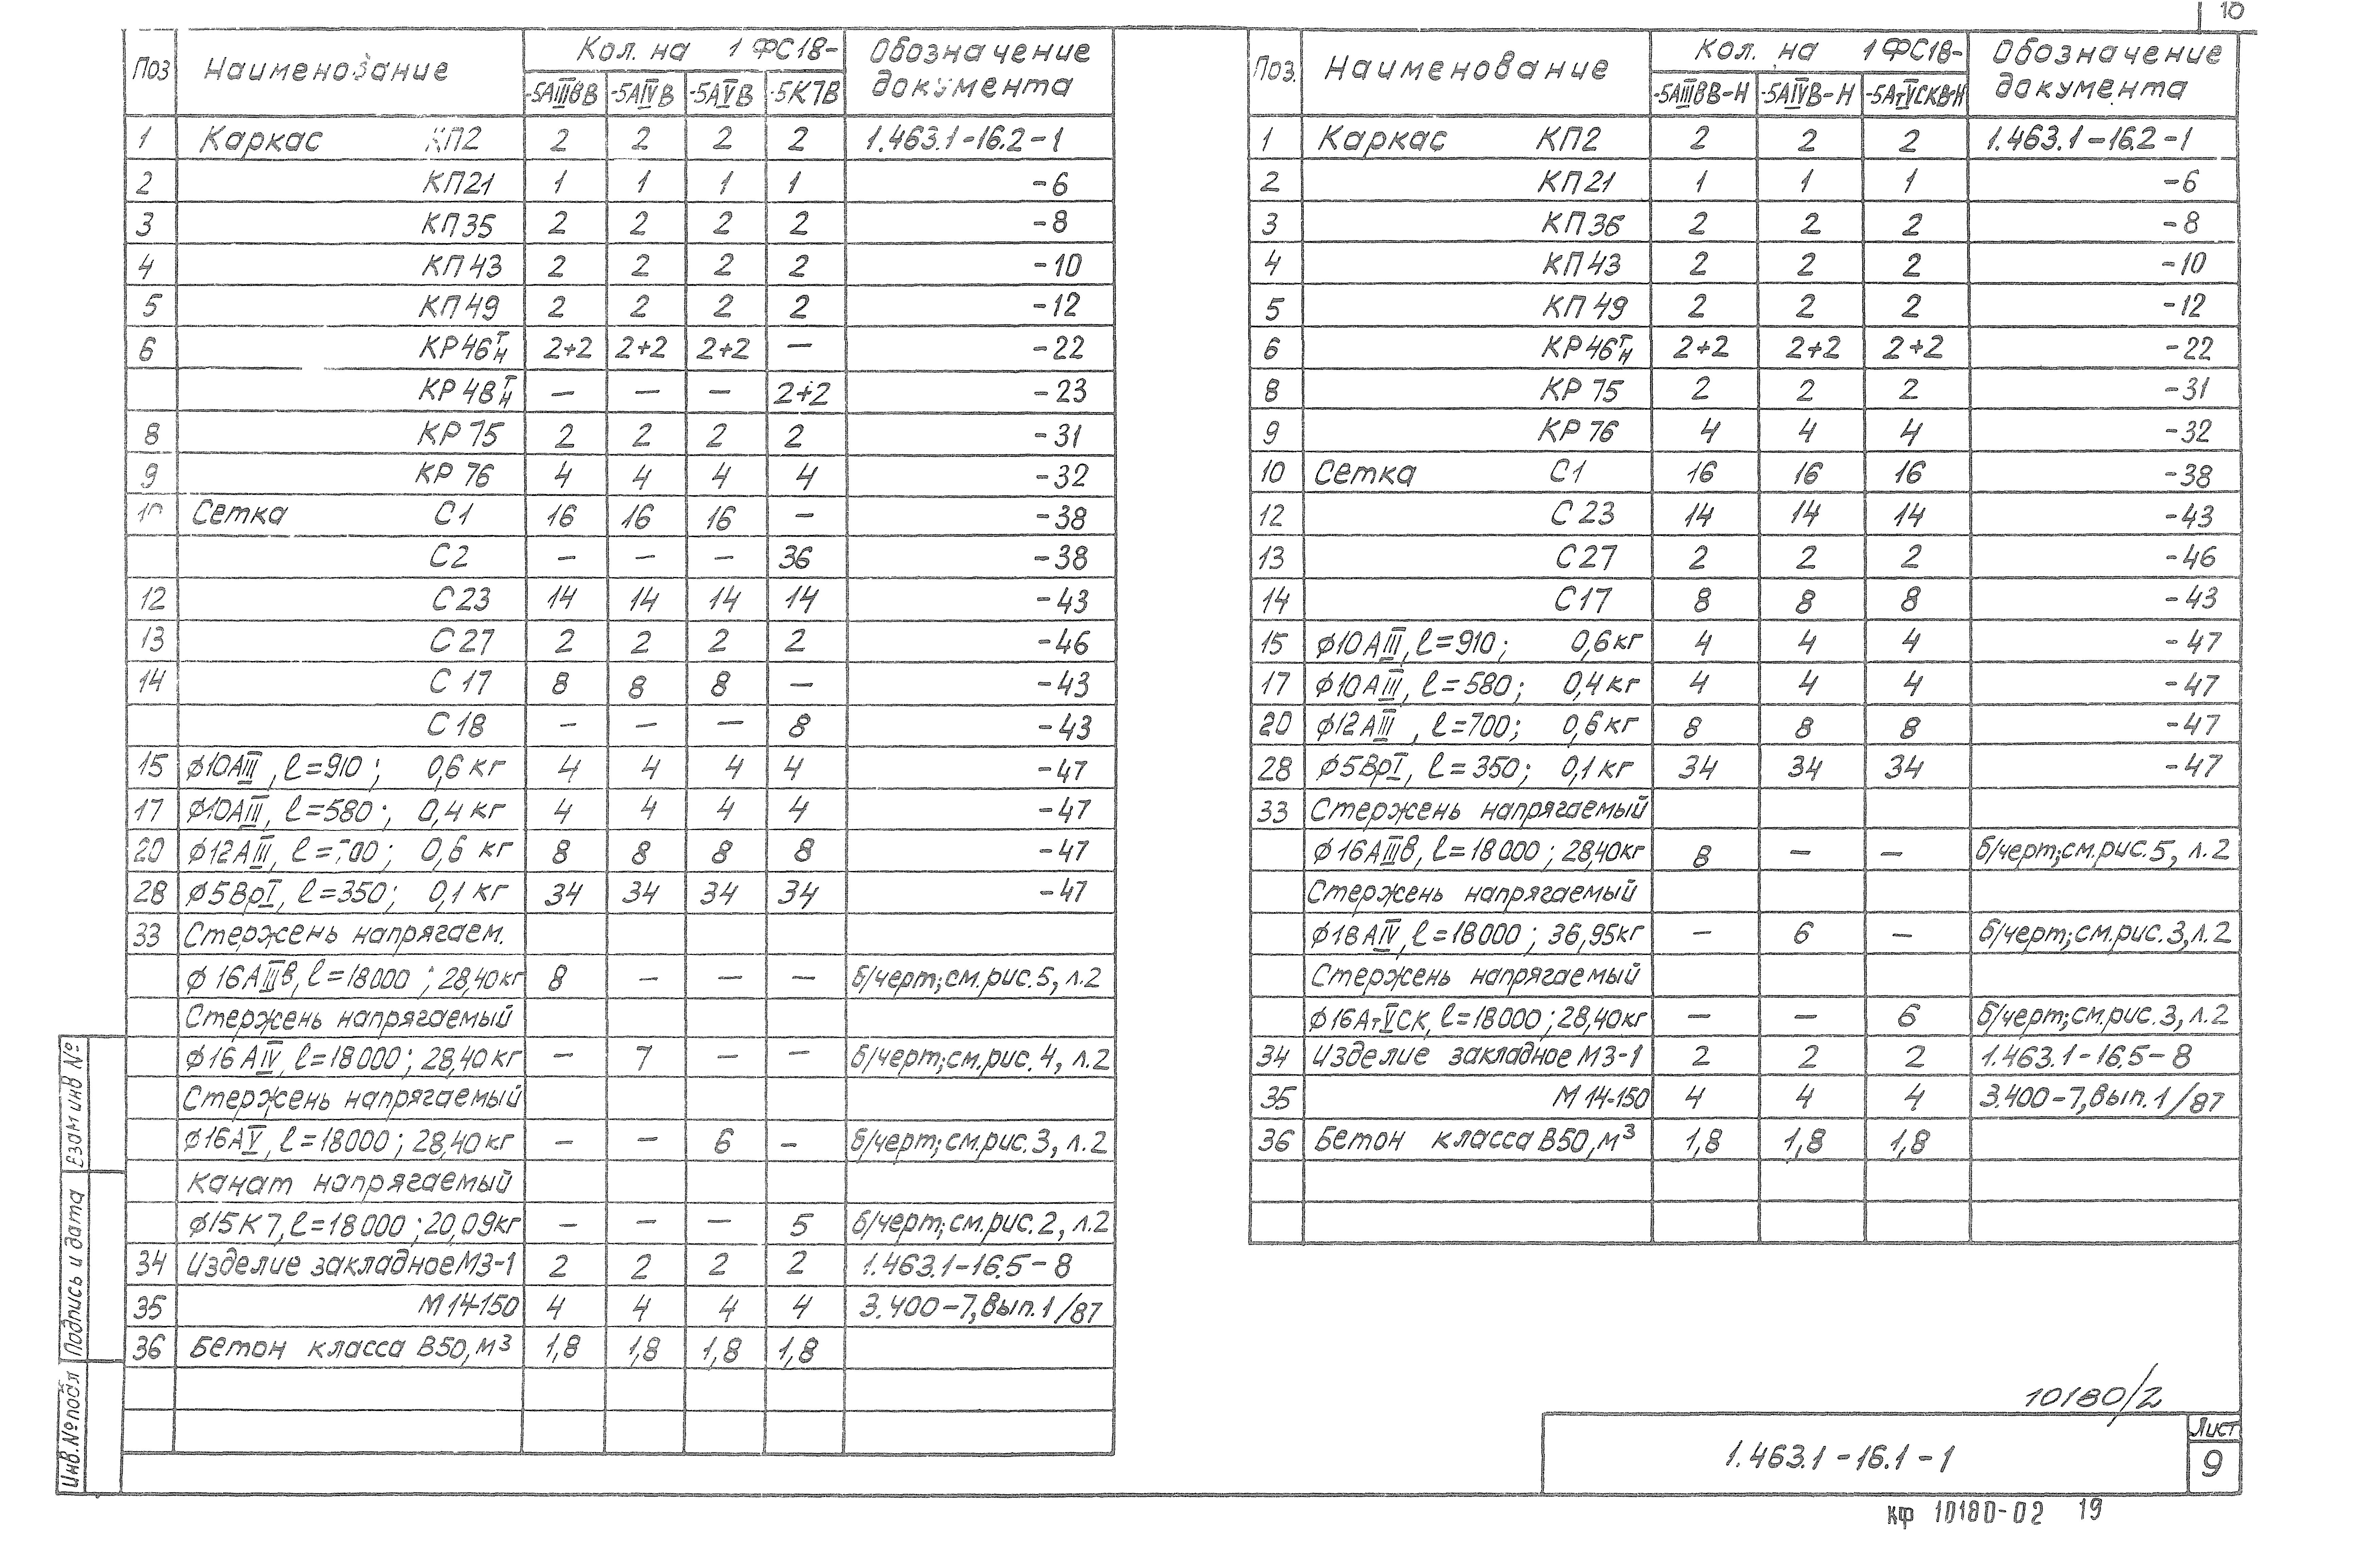 10
Поз Наименование Кол. на 1ФС18- Обозначение документа
-5АIIIвВ -5АIVВ -5АVВ -5К7В
1 Каркас КП2 2 2 2 2 1.463.1-16.2-1
2 КП21 1 1 1 1 -6
3 КП35 2 2 2 2 -8
4 КП43 2 2 2 2 -10
5 КП49 2 2 2 2 -12
6 КР46Т/Н 2+2 2+2 2+2 — -22
КР48Т/Н — — — 2+2 -23
8 КР75 2 2 2 2 -31
9 КР76 4 4 4 4 -32
10 Сетка С1 16 16 16 — -38
С2 — — — 36 -38
12 С23 14 14 14 14 -43
13 С27 2 2 2 2 -46
14 С17 8 8 8 — -43
С18 — — — 8 -43
15 ф10АIII, ℓ=910; 0,6кг 4 4 4 4 -47
17 ф10АIII, ℓ=580; 0,4кг 4 4 4 4 -47
20 ф12АIII, ℓ=700; 0,6 кг 8 8 8 8 -47
28 ф5ВрI, ℓ=350; 0,1кг 34 34 34 34 -47
33 Стержень напрягаем.
ф16АIIIв, ℓ=18000; 28,40кг 8 — — — б/черт; см.рис.5, л.2
Стержень напрягаемый
ф16АIV, ℓ=18000; 28,40кг — 7 — — б/черт; см.рис.4, л.2
Стержень напрягаемый
ф16АV, ℓ=18000; 28,40кг — — 6 — б/черт; см.рис.3, л.2
Канат напрягаемый
ф15К7, ℓ=18000; 20,09кг — — — 5 б/черт; см.рис.2, л.2
34 Изделие закладное МЗ-1 2 2 2 2 1.463.1-16.5-8
35 М14-150 4 4 4 4 3.400-7, вып.1/87
36 Бетон класса В50, м³ 1,8 1,8 1,8 1,8
Поз. Наименование Кол. на 1ФС18- Обозначение документа
-5АIIIвВ-Н -5АIVВ-Н -5АтVСКВ-Н
1 Каркас КП2 2 2 2 1.463.1-16.2-1
2 КП21 1 1 1 -6
3 КП36 2 2 2 -8
4 КП43 2 2 2 -10
5 КП49 2 2 2 -12
6 КР46Т/Н 2+2 2+2 2+2 -22
8 КР75 2 2 2 -31
9 КР76 4 4 4 -32
10 Сетка С1 16 16 16 -38
12 С23 14 14 14 -43
13 С27 2 2 2 -46
14 С17 8 8 8 -43
15 ф10АIII, ℓ=910; 0,6кг 4 4 4 -47
17 ф10АIII, ℓ=580; 0,4кг 4 4 4 -47
20 ф12АIII, ℓ=700; 0,6кг 8 8 8 -47
28 ф5ВрI, ℓ=350; 0,1кг 34 34 34 -47
33 Стержень напрягаемый
ф16АIIIв, ℓ=18000; 28,40кг 8 — — б/черт; см.рис.5, л.2
Стержень напрягаемый
ф18АIV, ℓ=18000; 36,95кг — 6 — б/черт; см.рис.3, л.2
Стержень напрягаемый
ф16АтVСК, ℓ=18000; 28,40кг — — 6 б/черт; см.рис.3, л.2
34 Изделие закладное МЗ-1 2 2 2 1.463.1-16.5-8
35 М14-150 4 4 4 3.400-7, вып.1/87
36 Бетон класса В50, м³ 1,8 1,8 1,8
Взам инв №
Подпись и дата
Инв.№подл
10180/2
1.463.1-16.1-1
Лист
9
кф 10180-02 19